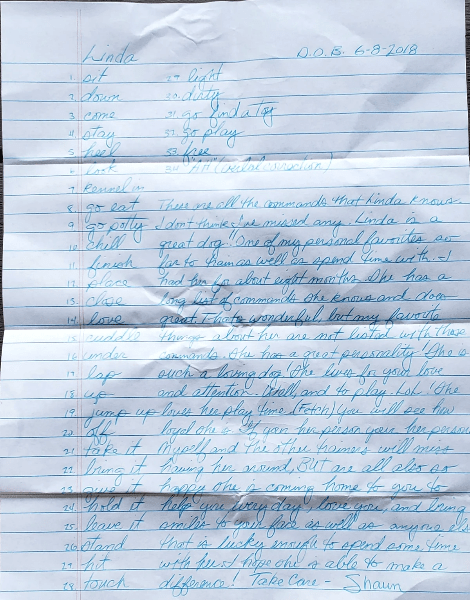 Linda D.O.B. 6-8-2018
1. sit 29. light
2. down 30. dirty
3. come 31. go find a Toy
4. stay 32. go play
5. heel 33. free
6. look 34. "AH" (verbal correction)
7. Kennel in
8. go eat These are all the commands that Linda knows
9. go potty I don't think I've missed any. Linda is a
10. chill great dog! One of my personal favorites so
11. finish far to train as well as spend time with. I
12. place had her for about eight months. She has a
13. close long list of commands she knows and does
14. love great. That's wonderful, but my favorite
15. cuddle things about her are not listed with these
16. under commands. She has a great personality! She is
17. lap such a loving dog! She lives for your love
18. up and attention. Well, and to play. LOL! She
19. jump up loves her play time. (Fetch) You will see how
20. off loyal she is. If your her person your her person
21. take it Myself and the other trainers will miss
22. bring it having her around, BUT are all also so
23. give it happy she is coming home to you to
24. hold it help you every day, love you, and bring
25. leave it smiles to your face as well as anyone else
26. stand that is lucky enough to spend some time
27. hit with her. I hope she is able to make a
28. touch difference! Take Care - Shaun